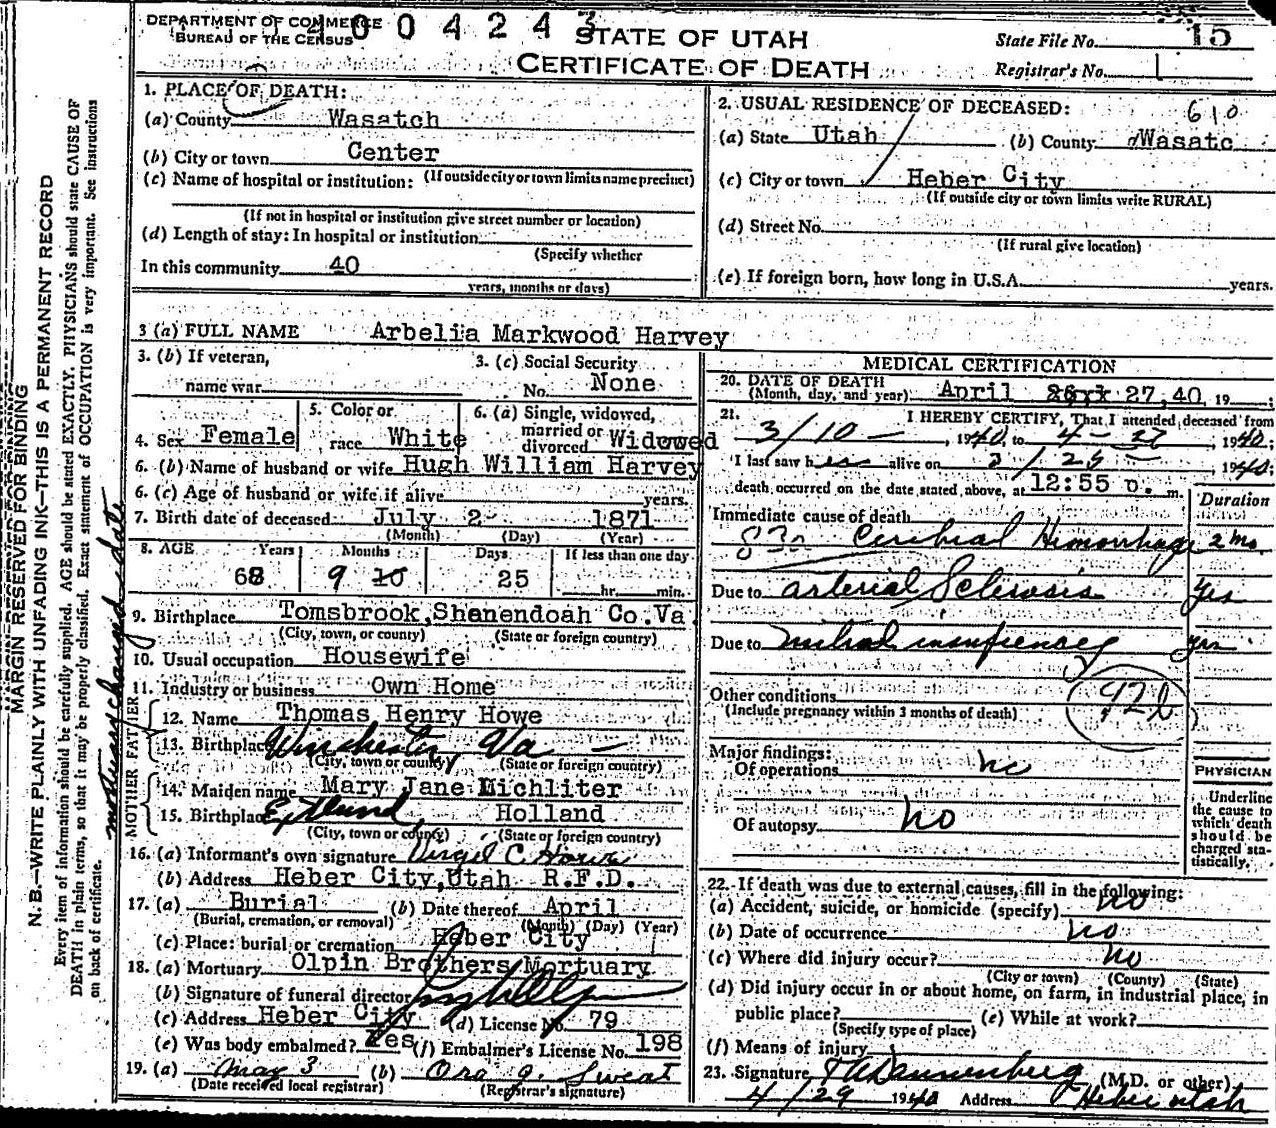 DEPARTMENT OF COMMERCE
BUREAU OF THE CENSUS
4 0 0 4 2 4 3
STATE OF UTAH
CERTIFICATE OF DEATH
State File No. 15
Registrar's No. 1
MARGIN RESERVED FOR BINDING
N. B.—WRITE PLAINLY WITH UNFADING INK—THIS IS A PERMANENT RECORD
Every item of information should be carefully supplied. AGE should be stated EXACTLY. PHYSICIANS should state CAUSE OF
DEATH in plain terms, so that it may be properly classified. Exact statement of OCCUPATION is very important. See instructions
on back of certificate.
mortuary changed date
1. PLACE OF DEATH:
(a) County Wasatch
(b) City or town Center
(If outside city or town limits name precinct)
(c) Name of hospital or institution:
(If not in hospital or institution give street number or location)
(d) Length of stay: In hospital or institution
(Specify whether
In this community 40
years, months or days)
2. USUAL RESIDENCE OF DECEASED: 610
(a) State Utah (b) County Wasatc
(c) City or town Heber City
(If outside city or town limits write RURAL)
(d) Street No.
(If rural give location)
(e) If foreign born, how long in U.S.A. years.
3 (a) FULL NAME Arbelia Markwood Harvey
3. (b) If veteran,
name war
3. (c) Social Security
No. None
4. Sex Female
5. Color or
race White
6. (a) Single, widowed,
married or
divorced Widowed
6. (b) Name of husband or wife Hugh William Harvey
6. (c) Age of husband or wife if alive years.
7. Birth date of deceased July 2 1871
(Month) (Day) (Year)
8. AGE Years Months Days If less than one day
68 9 10 25 hr. min.
9. Birthplace Tomsbrook, Shenendoah Co. Va
(City, town, or county) (State or foreign country)
10. Usual occupation Housewife
11. Industry or business Own Home
FATHER
12. Name Thomas Henry Howe
13. Birthplace Winchester, Va
(City, town or county) (State or foreign country)
MOTHER
14. Maiden name Mary Jane Michliter
15. Birthplace Holland
(City, town or county) (State or foreign country)
16. (a) Informant's own signature Virgel C. Howe
(b) Address Heber City, Utah R.F.D.
17. (a) Burial (b) Date thereof April
(Burial, cremation, or removal) (Month) (Day) (Year)
(c) Place: burial or cremation Heber City
18. (a) Mortuary Olpin Brothers Mortuary
(b) Signature of funeral director
(c) Address Heber City (d) License No. 79
(e) Was body embalmed? Yes (f) Embalmer's License No. 198
19. (a) May 3 (b) Ora J. Sweat
(Date received local registrar) (Registrar's signature)
MEDICAL CERTIFICATION
20. DATE OF DEATH
(Month, day, and year) April 27, 40 19
21. I HEREBY CERTIFY, That I attended deceased from
3/10 — , 1940, to 4-27, 1940;
I last saw her alive on 3/25 — , 1940;
death occurred on the date stated above, at 12:55 p. m.
Duration
Immediate cause of death
83a Cerebral Hemorrhage 2 mo
Due to arterial Sclerosis yrs
Due to mitral insufficiency yrs
Other conditions
(Include pregnancy within 3 months of death)
92b
Major findings:
Of operations no
Of autopsy no
PHYSICIAN
Underline
the cause to
which death
should be
charged sta-
tistically.
22. If death was due to external causes, fill in the following:
(a) Accident, suicide, or homicide (specify) no
(b) Date of occurrence no
(c) Where did injury occur? no
(City or town) (County) (State)
(d) Did injury occur in or about home, on farm, in industrial place, in
public place? (e) While at work?
(Specify type of place)
(f) Means of injury
23. Signature Dannenberg (M.D. or other)
4/29 1940 Address Heber Utah